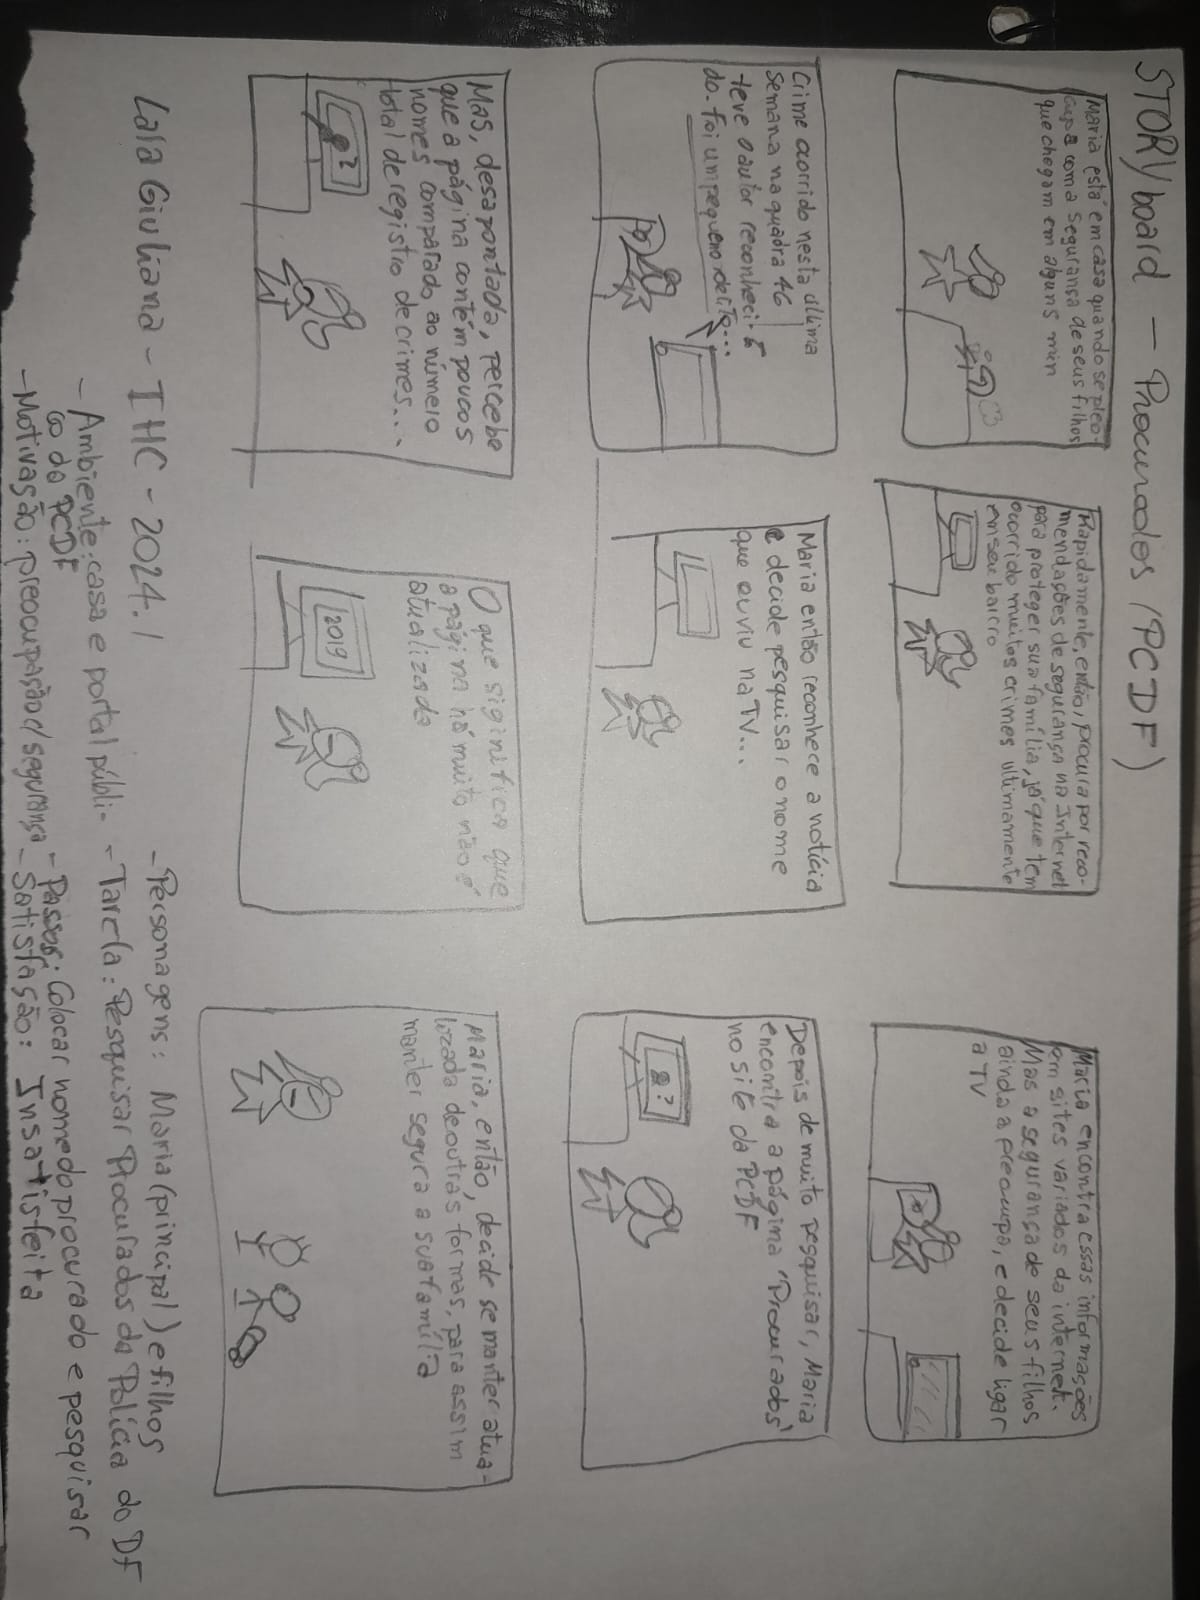 STORYboard - Procurados (PCDF)
Maria está em casa quando se preo-
cupa com a Segurança de seus filhos
que chegam em alguns min
Rapidamente, então, procura por reco-
mendações de segurança na Internet
para proteger sua família, já que tem
ocorrido muitos crimes ultimamente
em seu bairro
Maria encontra essas informações
em sites variados da internet.
Mas a segurança de seus filhos
ainda a preocupa, e decide ligar
a TV
Crime ocorrido nesta última
Semana na quadra 46
teve o autor reconheci-
do. Foi um pequeno delito...
Maria então reconhece a notícia
e decide pesquisar o nome
que ouviu na TV...
Depois de muito pesquisar, Maria
encontra a página 'Procurados'
no site da PCDF
?
Mas, desapontada, percebe
que a página contém poucos
nomes comparado ao número
total de registro de crimes...
?
O que siginifica que
a página há muito não é
atualizada
2019
Maria, então, decide se manter atua-
lizada de outras formas, para assim
manter segura a sua família
Lara Giuliana - IHC - 2024.1
- Ambiente: casa e portal públi-
co da PCDF
- Motivação: preocupação c/ segurança
- Personagens: Maria (principal) e filhos
- Tarefa: Pesquisar Procurados da Polícia do DF
- Passos: Colocar nome do procurado e pesquisar
- Satisfação: Insatisfeita